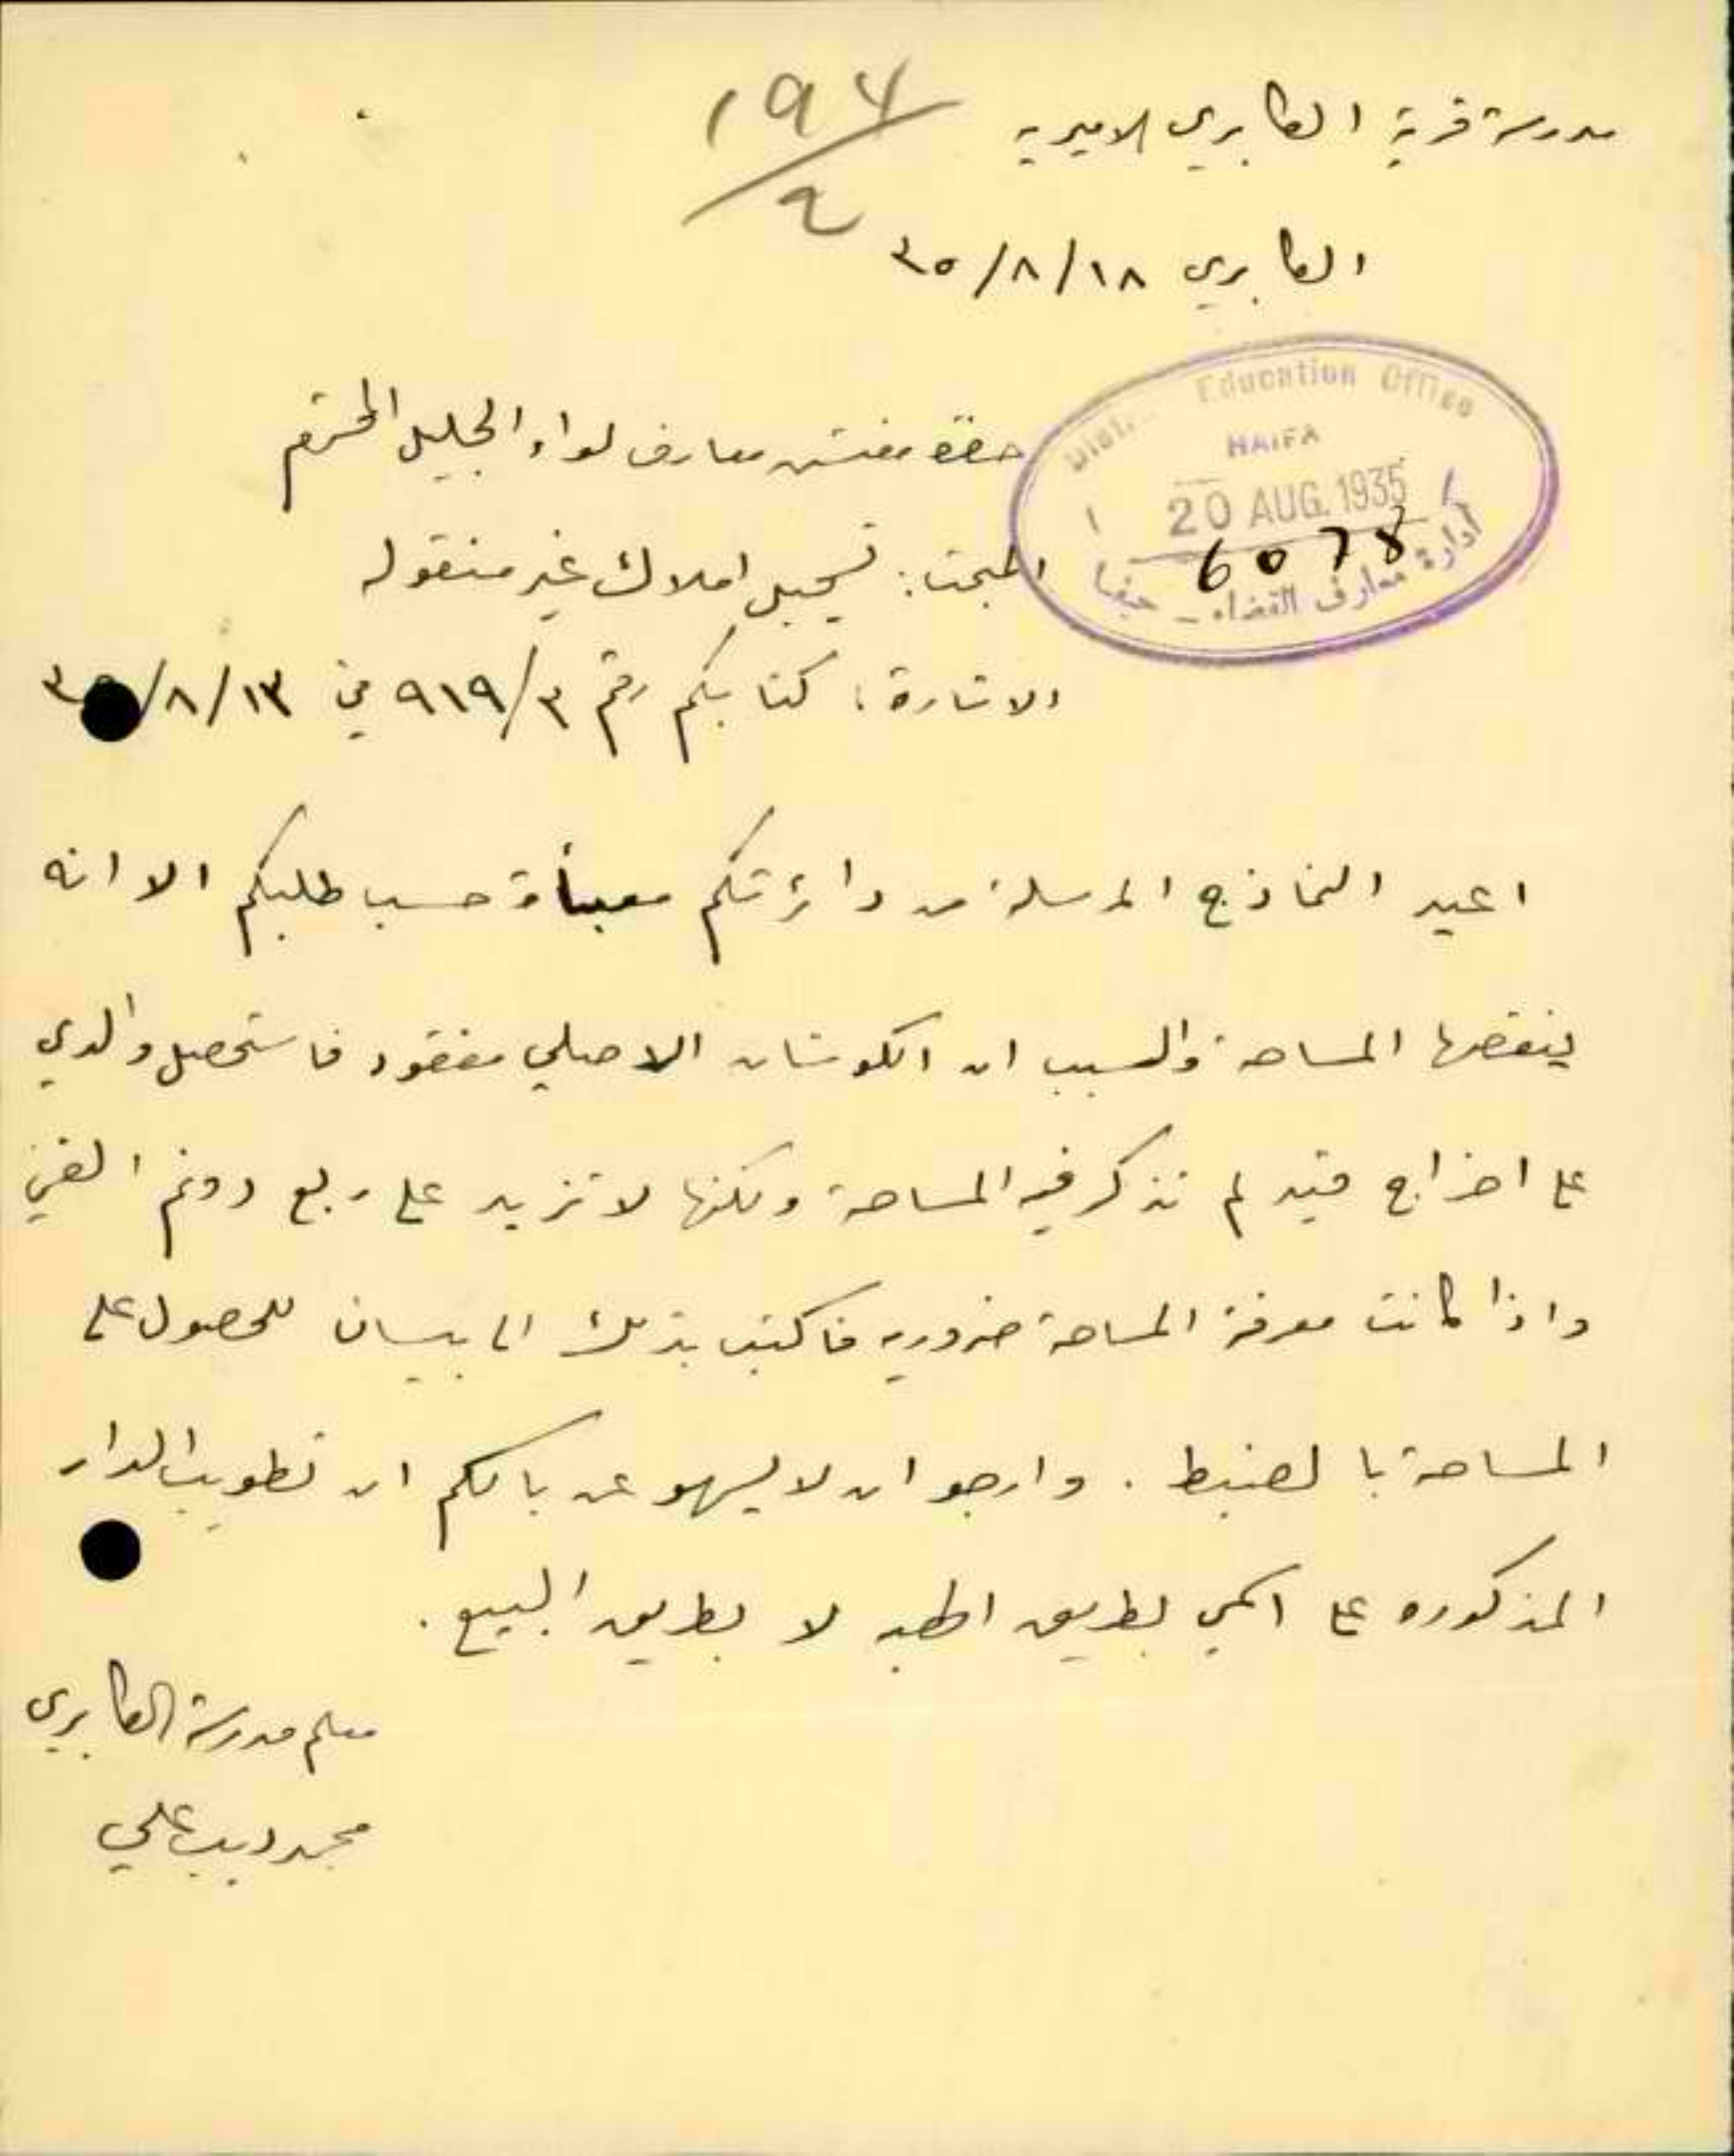 مدرسة قرية الكابري الاميريه
١٩٧/٢
الكابري ١٨/٨/٣٥
District Education Office
HAIFA
20 AUG. 1935
6078
ادارة معارف القضاء - حيفا
حضرة مفتش معارف لواء الجليل المحترم
المبحث: تسجيل املاك غير منقوله
الاشارة: كتابكم رقم ٩١٩/٣ في ١٣/٨/٣٥
اعيد النماذج المرسلة من دائرتكم معبأة حسب طلبكم الا انه
ينقصها المساحة والسبب ان الكوشان الاصلي مفقود فاستحصل والدي
على اخراج قيد لم تذكر فيه المساحة ولكنها لا تزيد على ربع دونم
واذا كانت معرفة المساحة ضروريه فاكتب بذلك الى بيسان للحصول على
المساحة بالضبط. وارجو ان لا يسهو عن بالكم ان تطويب الدار
المذكوره على اسمي بطريق الهبه لا بطريق البيع.
معلم مدرسة الكابري
محمد ديب علي